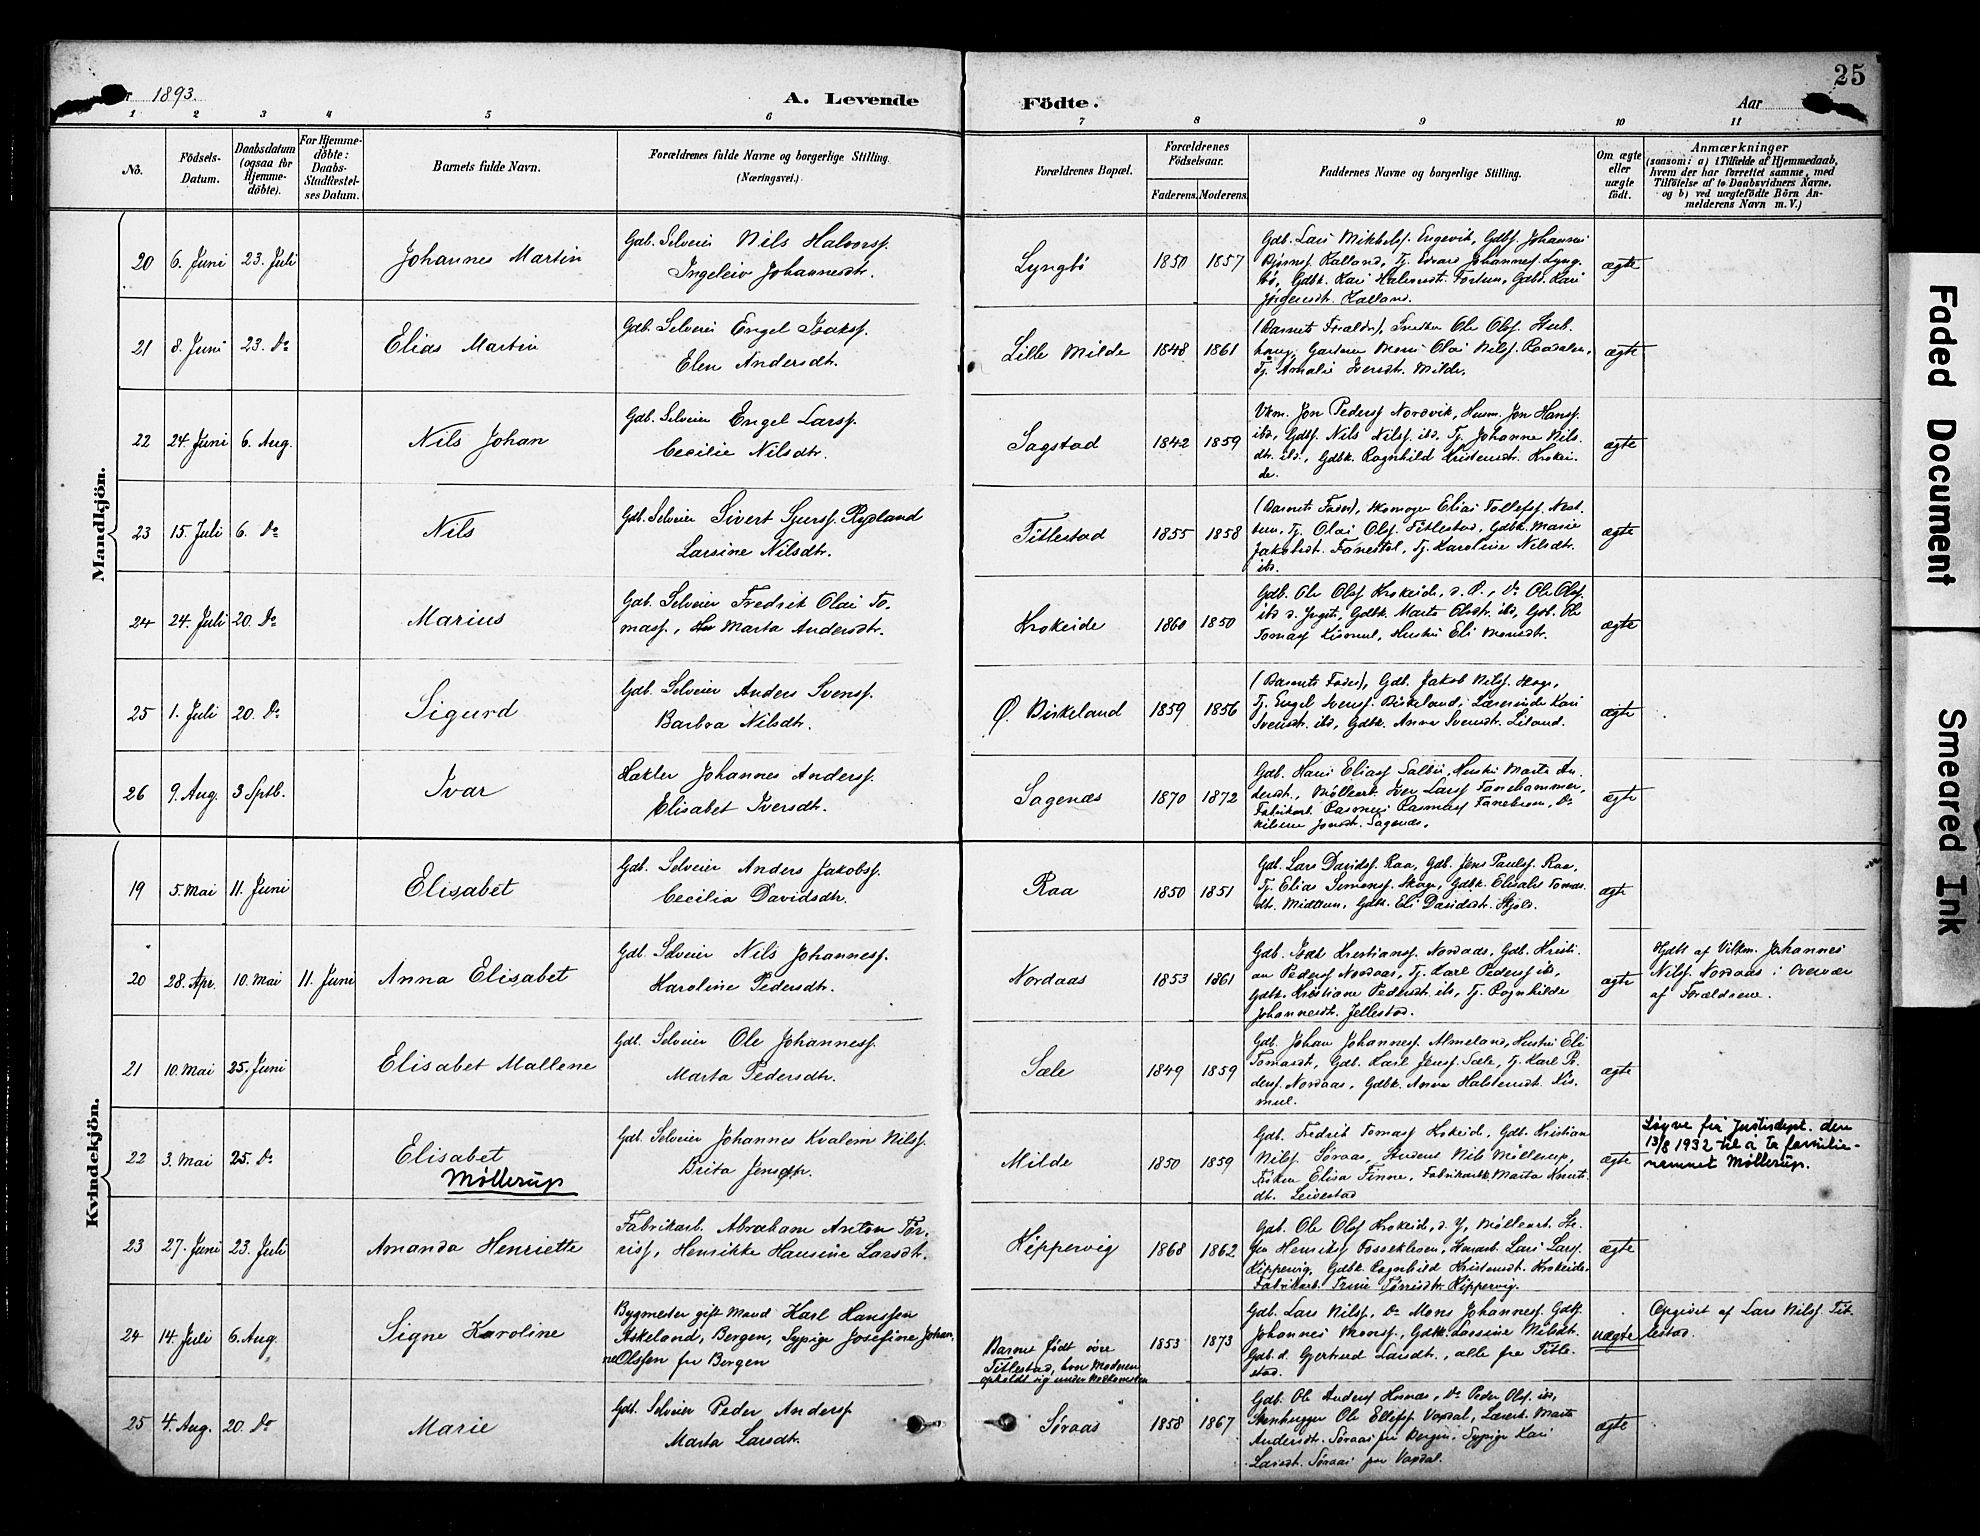 1893.
A. Levende Födte.
Aar
25
1 2 3 4 5 6 7 8 9 10 11
No.
Födsels-Datum.
Daabsdatum (ogsaa for Hjemme-döbte).
For Hjemme-döbte: Daabs-Stadfestel-ses Datum.
Barnets fulde Navn.
Forældrenes fulde Navne og borgerlige Stilling.
(Næringsvei.)
Forældrenes Bopæl.
Forældrenes Födselsaar.
Faderens. Moderens.
Faddernes Navne og borgerlige Stilling.
Om ægte eller uægte födt.
Anmærkninger
(saasom: a) i Tilfælde af Hjemmedaab, hvem der har forrettet samme, med Tilföielse af to Daabsvidners Navne, og b) ved uægtefödte Börn Anmelderens Navn m. V.)
Mandkjön.
20 6. Juni 23. Juli Johannes Martin
Gdb. Selveier Nils Halvorsf.
Ingeleiv Johannesdr.
Lyngbö 1850 1857
Gdb. Lars Mikkelsf. Engevik, Gdbf. Johannes
Bjørnsf. Kalland, Tj. Edvard Johannesf. Lyng-
bö, Gdbk. Kari Halvorsdt. Fortun, Gdbd. Kari
Jörgensdt. Kalland.
ægte
21 8. Juni 23. Do Elias Martin
Gdb. Selveier Engel Isaksf.
Elen Andersdt.
Lille Milde 1848 1861
(Barnets Forældre), Snedker Ole Olsf.
Gartner Mons Olai Nilsf. Raadalen,
Tj. Amalie Iversdt. Milde.
ægte
22 24. Juni 6. Aug. Nils Johan
Gdb. Selveier Engel Larsf.
Cecilie Nilsdtr.
Sagstad 1842 1859
Vkm. Jon Pedersf Nordvik, Husm. Jon Hansf.
ibd, Gdbf. Nils Nilsf. ibd, Tj. Johanne Nils-
dtr. ibd., Gdbk. Ragnhild Kristensdt. Krokei-
de.
ægte
23 15. Juli 6. Do Nils
Gdb. Selveier Sivert Sjursf. Rydland
Larsine Nilsdtr.
Titlestad 1855 1858
(Barnets Fader), Skomager Elias Tollefsf. Nest-
tun, Tj. Olai Olsf. Titlestad, Gdbk. Marie
Jakobsdt. Fanestøl, Tj. Karoline Nilsdtr.
ibd.
ægte
24 24. Juli 20. Do Marius
Gdb. Selveier Fredrik Olai To-
masf., Marta Andersdtr.
Krokeide 1860 1850
Gdb. Ole Olsf Krokeide, d. Æ., Do Ole Olsf.
ibd d. Yngste, Gdbk. Marta Olsdtr. ibd, Gdb. Ole
Tomasf Kismul, Hustru Eli Monsdtr.
ægte
25 1. Juli 20. Do Sigurd
Gdb. Selveier Anders Svensf.
Barbra Nilsdtr.
Ø. Birkeland 1859 1856
(Barnets Fader), Gdb. Jakob Nilsf. Skage,
Tj. Engel Svensf. Birkeland, Lærerinde Kari
Svensdt. ibd, Gdbk. Anna Svensdt. Liland.
ægte
26 9. Aug. 3 Septb. Ivar
Hakler Johannes Andersf.
Elisabet Iversdtr.
Sagenæs 1870 1872
Gdb. Hans Eliasf Sælen, Hustru Marta An-
dersdt., Møllearb. Iver Larsf Fanehammer,
Fabrikarb. Rasmus Rasmusf Fanebrem, Do
Nilsine Jonsdt. Sagenæs.
ægte
Kvindekjön.
19 5. Mai 11. Juni Elisabet
Gdb. Selveier Anders Jakobsf.
Cecilia Davidsdtr.
Raa 1850 1851
Gdb. Lars Davidsf. Raa, Gdb. Jens Paulsf. Raa,
Tj. Elias Simonsf. Skage, Gdbk. Elisabet Tomas-
dtr. Midttun, Gdbk. Eli Davidsdt. Skjold.
ægte
20 28. Apr. 10. Mai 11. Juni Anna Elisabet
Gdb. Selveier Nils Johannesf.
Karoline Pedersdtr.
Nordaas 1853 1861
Gdb. Isak Kristiansf. Nordaas, Gdb. Kristi-
an Pedersf Nordaas, Tj. Karl Pedersf ibd,
Gdbk. Kristiane Pedersdt. ibd, Tj. Ragnhilde
Johannesdt. Jellestad.
ægte
Hjdbt af Vilkm. Johannes
Nilsf. Nordaas i Overvær
af Forældrene.
21 10. Mai 25. Juni Elisabet Mallene
Gdb. Selveier Ole Johannesf.
Marta Pedersdtr.
Sæle 1849 1859
Gdb. Johan Johannesf Almeland, Hustru Eli
Tomasdt, Gdb. Karl Jensf Sæle, Tj. Karl Pe-
dersf. Nordaas, Gdbk. Anna Halstensdt. Kis-
mul.
ægte
22 3. Mai 25. Do Elisabet
Møllerup
Gdb. Selveier Johannes Kvalem Nilsf.
Brita Jensdtr.
Milde 1850 1859
Gdb. Fredrik Tomasf Krokeide, Gdb. Kristian
Nilsf. Søraas, Student Nils Møllerup,
Frøken Elisa Finne, Fabrikarb. Marta Knuts-
dt. Leirestad
ægte
Løyve frå Justisdept. den
13/8 1932 til å ta familie-
namnet Møllerup.
23 27. Juni 23. Juli Amanda Henriette
Fabrikarb. Abraham Anton Tör-
risf, Henrikke Hansine Larsdt.
Kippervig 1868 1862
Gdb. Ole Olsf Krokeide, d. Y, Møllearb. Ste-
fen Henriksf Fossekleven, Husarb. Lars Larsf.
Kippervig, Gdbk. Ragnhild Kristensdt. Krokeide,
Fabrikarb. Trine Törrisdtr Kippervig.
ægte
24 14. Juli 6. Aug. Signe Karoline
Bygmester gift Mand Karl Hanssen
Askeland, Bergen, Sypige Josefine Johan-
ne Olssen fra Bergen
Barnet født øvre
Titlestad, hvor Moderen
opholdt sig under Nedkomsten
1853 1873
Gdb. Lars Nilsf, Do Mons Johannesf. Gdbf.
Johannes Monsf., Gdbk. Larsine Nilsdt.
Gdb. d. Gjertrud Larsdt., alle fra Title-
stad.
uægte
Opgivet af Lars Nilsf. Tit-
lestad.
25 4. Aug. 20. Do Marie
Gdb. Selveier Peder Andersf
Marta Larsdtr.
Søraas 1858 1867
Gdb. Ole Andersf Hosnæs, Do Peder Olsf. ibd,
Stenhugger Ole Ellefsf Vaxdal, Marta
Andersdt. Søraas fra Bergen, Sypige Kari
Larsdt. Søraas fra Vaxdal.
ægte
Faded Document
Smeared Ink